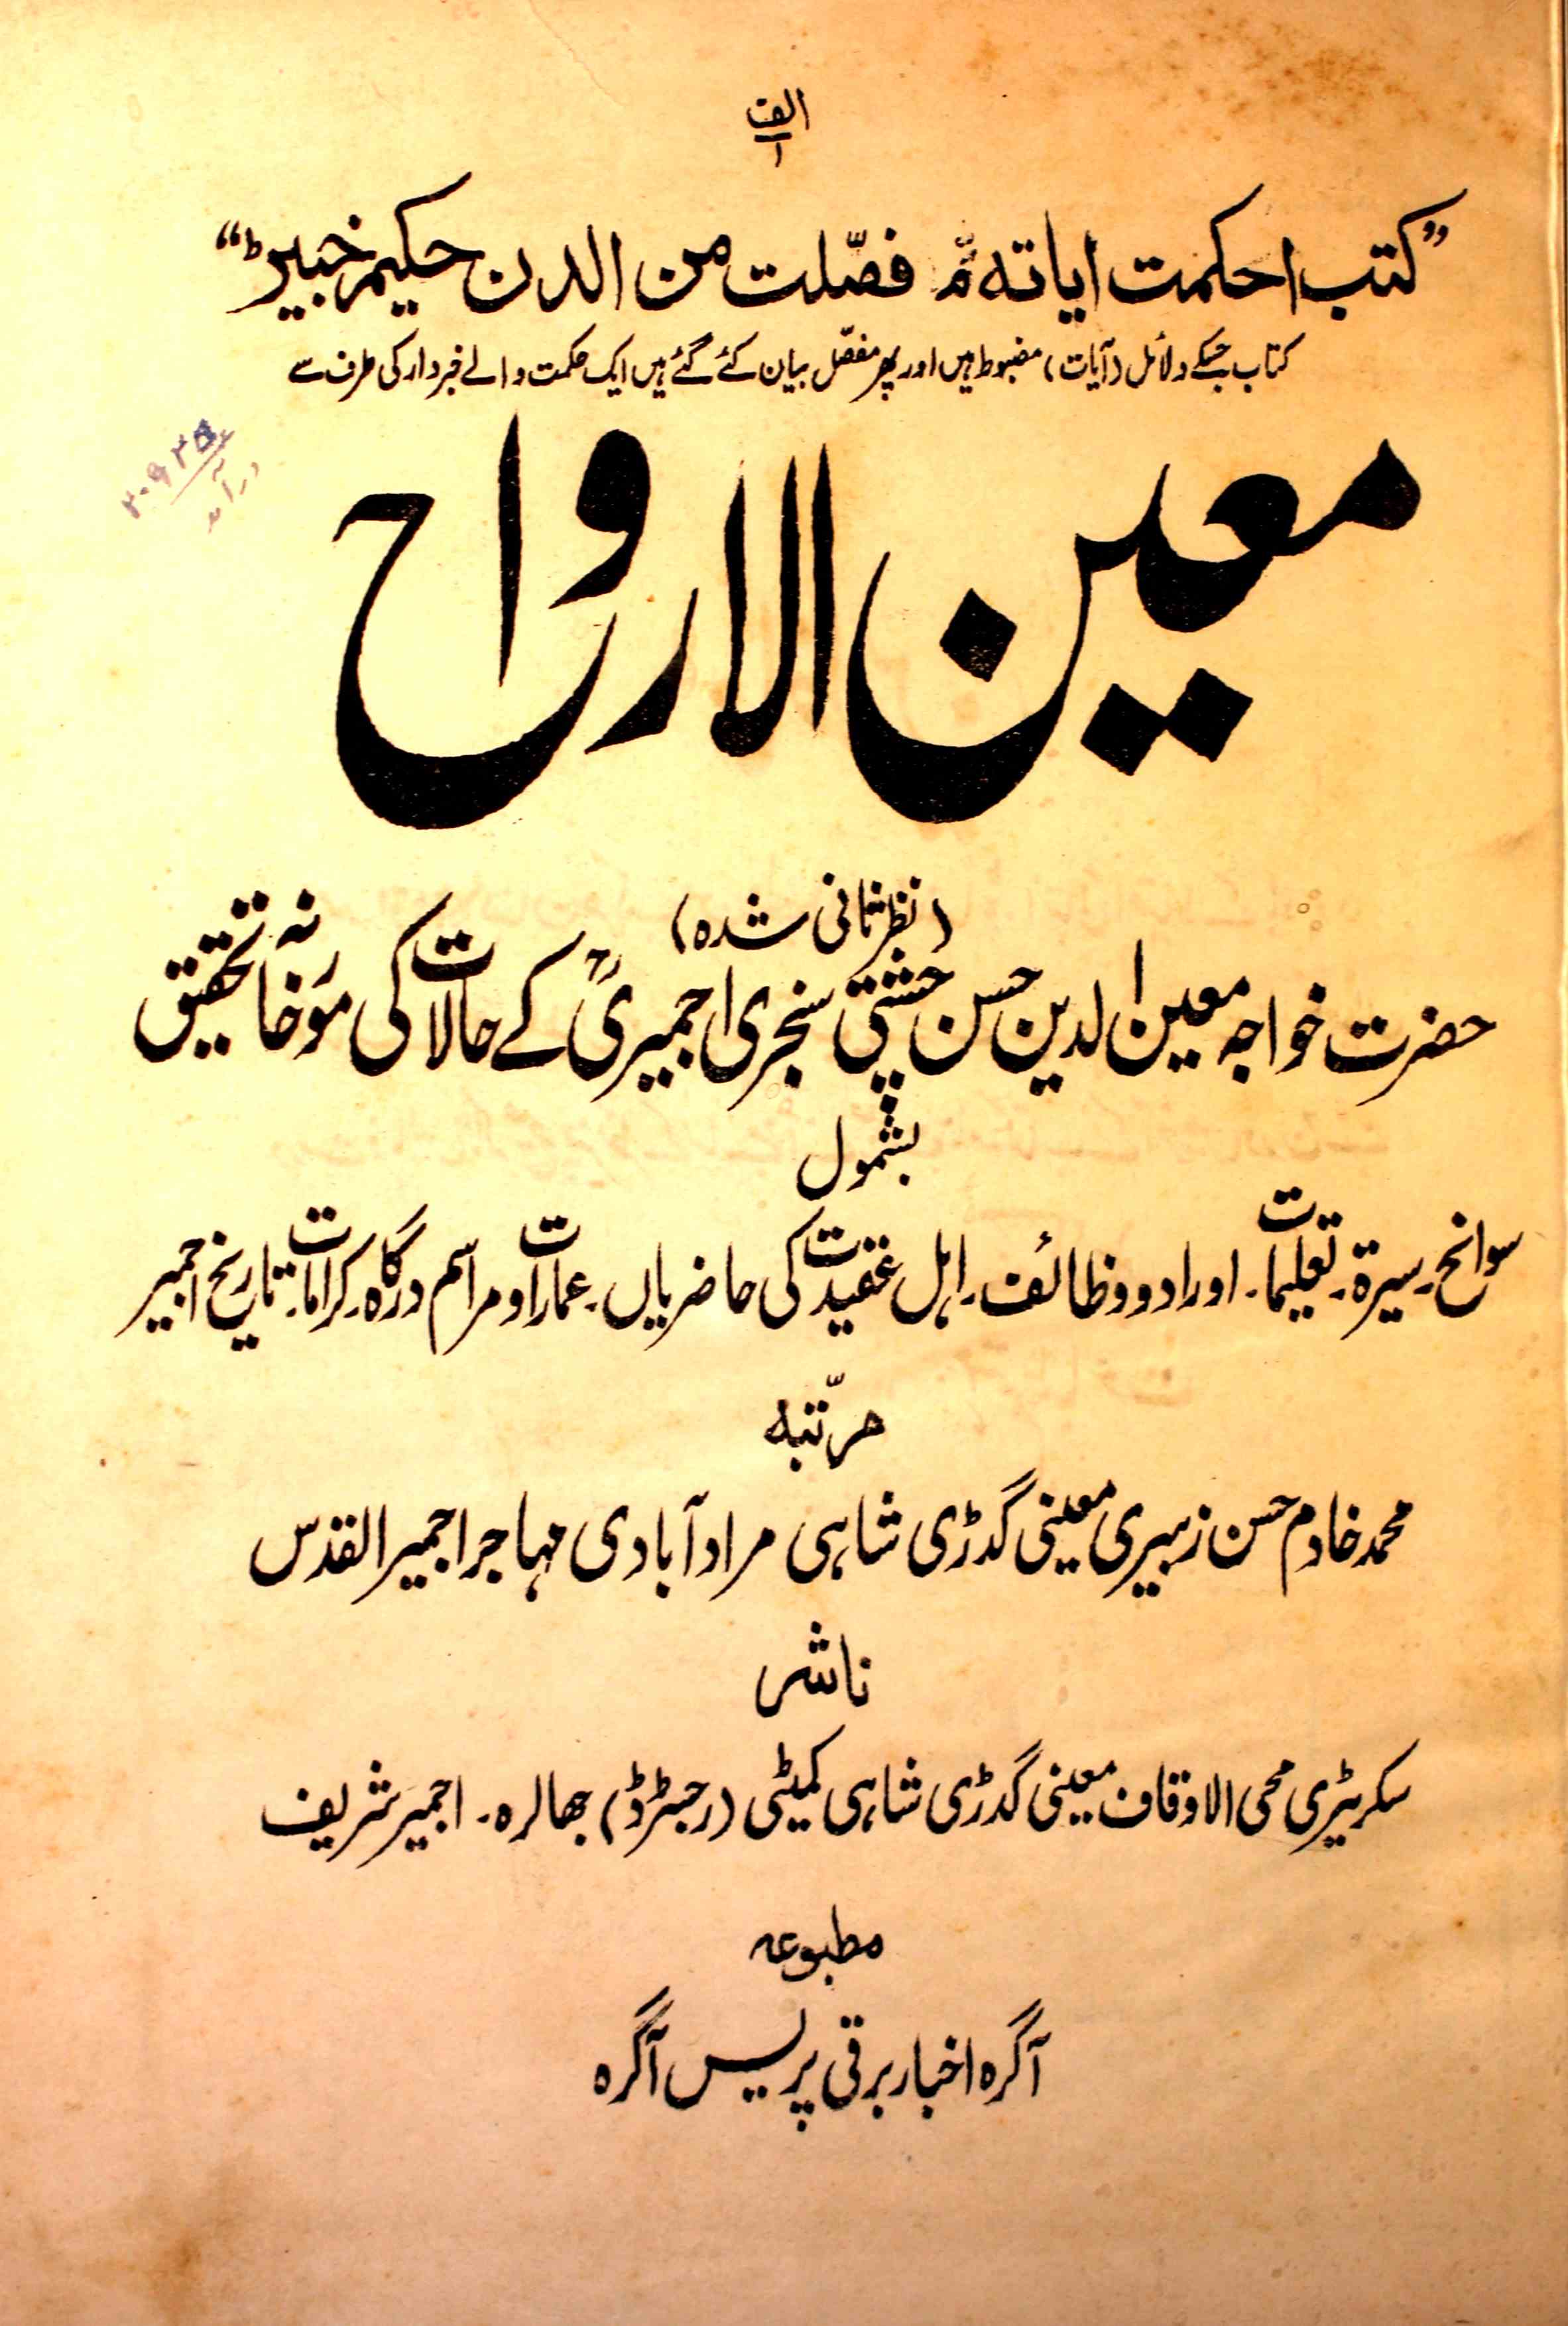 الف
۱
”کتب احکمت ایاته ثم فصّلت من الدن حکیم خبیرؕ“
کتاب جسکے دلائل (آیات) مضبوط ہیں اور پھر مفصّل بیان کئے گئے ہیں ایک حکمت والے خبردار کی طرف سے
معین الارواح
(نظر ثانی شدہ)
حضرت خواجہ معین الدین حسن چشتی سنجری اجمیریؒ کے حالات کی مؤرخانہ تحقیق
بشمول
سوانح۔ سیرۃ۔ تعلیمات۔ اوراد و وظائف۔ اہل عقیدت کی حاضریاں۔ عمارات و مراسم درگاہ۔ کرامات۔ تاریخ اجمیر
مرتّبہ
محمد خادم حسن زبیری معینی گدڑی شاہی مرادآبادی مہاجر اجمیر القدس
ناشر
سکریٹری محی الاوقاف معینی گدڑی شاہی کمیٹی (رجسٹرڈ) جھالرہ۔ اجمیر شریف
مطبوعہ
آگرہ اخبار برقی پریس آگرہ